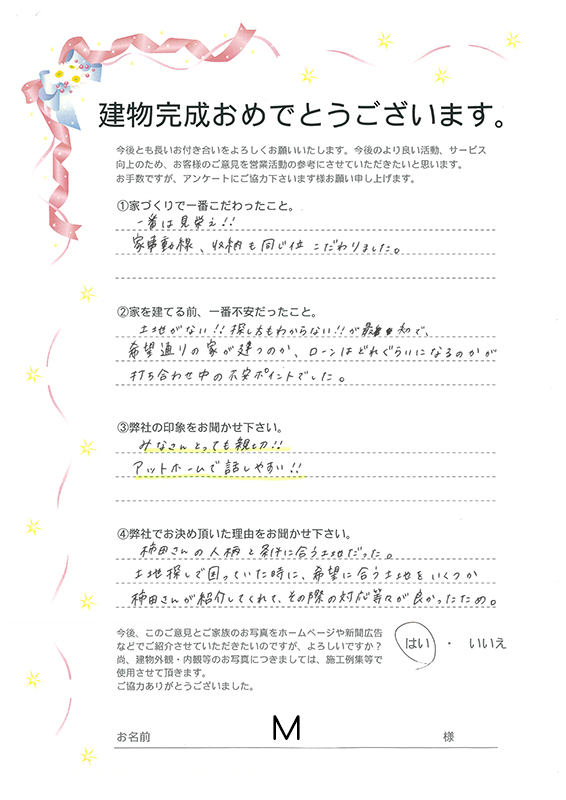 建物完成おめでとうございます。
今後とも長いお付き合いをよろしくお願いいたします。今後のより良い活動、サービス
向上のため、お客様のご意見を営業活動の参考にさせていただきたいと思います。
お手数ですが、アンケートにご協力下さいます様お願い申し上げます。
①家づくりで一番こだわったこと。
一番は見栄え!!
家事動線、収納も同じ位こだわりました。
②家を建てる前、一番不安だったこと。
土地がない!!探し方もわからない!!が最初で、
希望通りの家が建つのか、ローンはどれぐらいになるのかが
打ち合わせ中の不安ポイントでした。
③弊社の印象をお聞かせ下さい。
みなさんとっても親切!!
アットホームで話しやすい!!
④弊社でお決め頂いた理由をお聞かせ下さい。
柿田さんの人柄と条件に合う土地だった。
土地探しで困っていた時に、希望に合う土地をいくつか
柿田さんが紹介してくれて、その際の対応等々が良かったため。
今後、このご意見とご家族のお写真をホームページや新聞広告
などでご紹介させていただきたいのですが、よろしいですか？
はい ・ いいえ
尚、建物外観・内観等のお写真につきましては、施工例集等で
使用させて頂きます。
ご協力ありがとうございました。
お名前 M 様